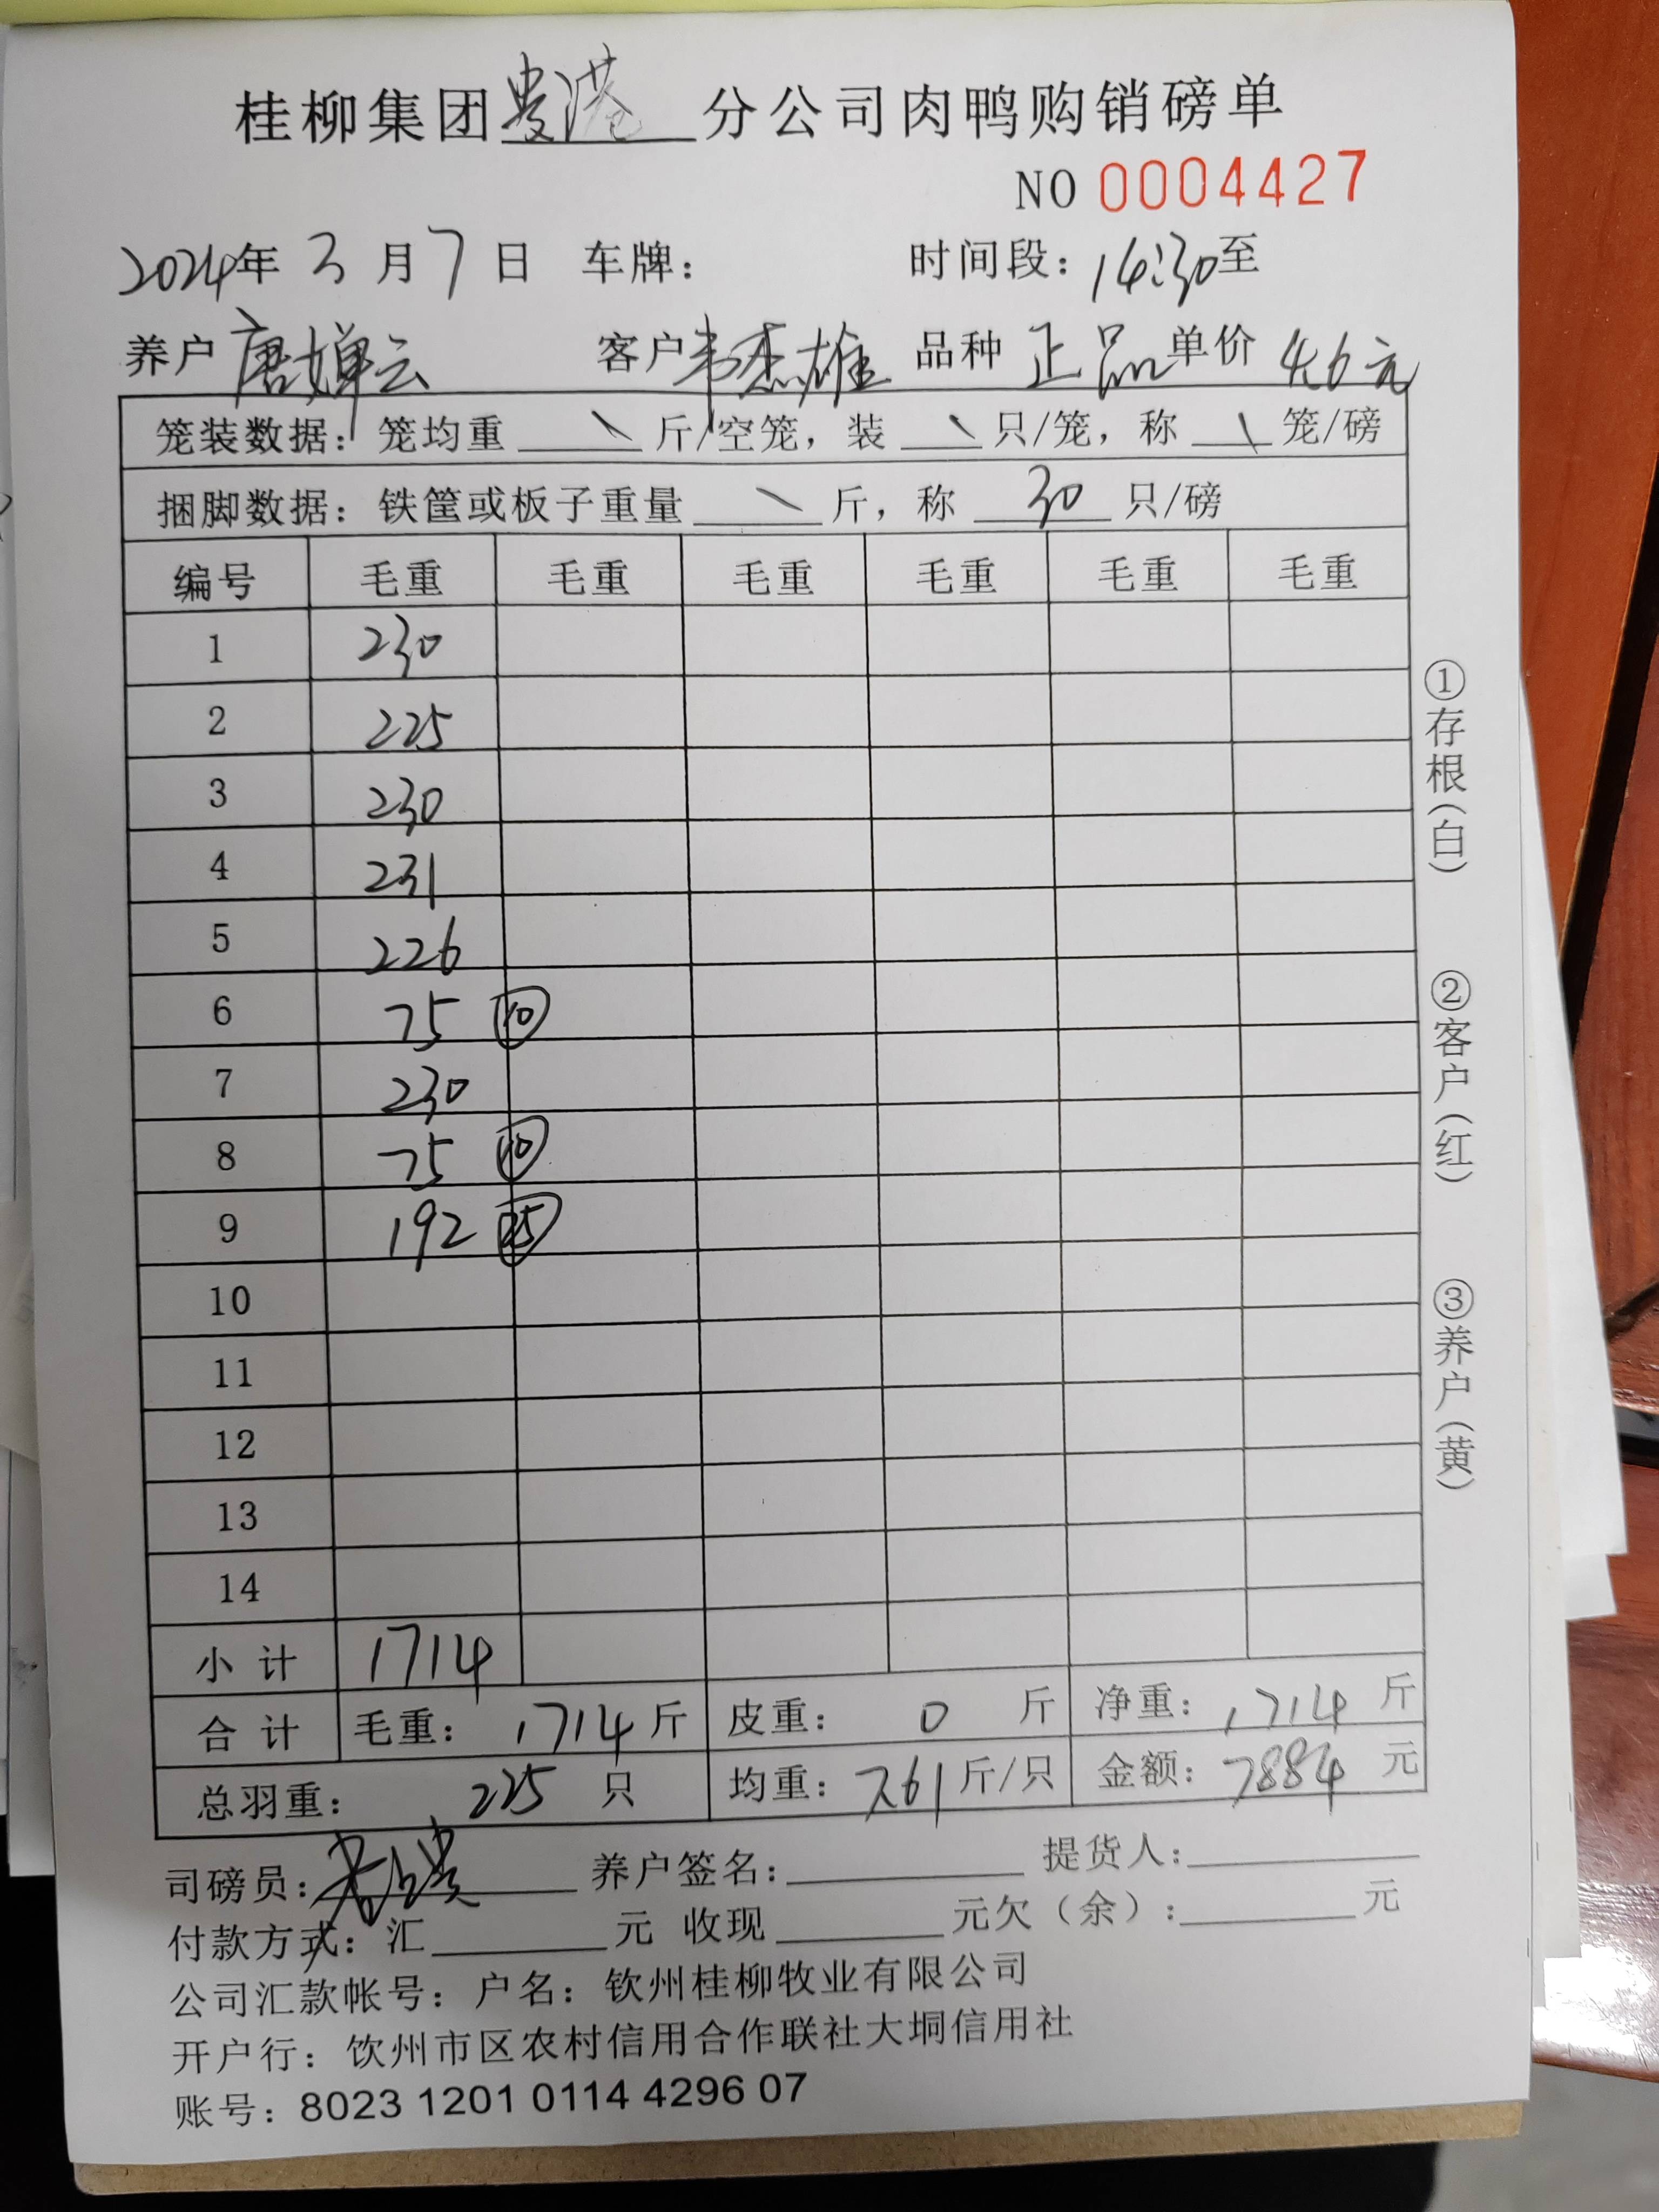 桂柳集团贵港分公司肉鸭购销磅单
NO 0004427
2024年 3 月 7 日 车牌： 时间段：14:30至
养户 唐婵云 客户 韦杰雄 品种 正品 单价 4.6元
笼装数据：笼均重 \ 斤/空笼，装 \ 只/笼，称 \ 笼/磅
捆脚数据：铁筐或板子重量 \ 斤，称 30 只/磅
编号 毛重 毛重 毛重 毛重 毛重 毛重
1 230
2 225
3 230
4 231
5 226
6 75 ⑩
7 230
8 75 ⑩
9 192 ㉕
10
11
12
13
14
小 计 1714
合 计 毛重：1714 斤 皮重：0 斤 净重：1714 斤
总羽重：225 只 均重：7.61 斤/只 金额：7884 元
司磅员： 养户签名： 提货人：
付款方式：汇 元 收现 元欠（余）： 元
公司汇款帐号：户名：钦州桂柳牧业有限公司
开户行：钦州市区农村信用合作联社大垌信用社
账号：8023 1201 0114 4296 07
①存根（白）
②客户（红）
③养户（黄）